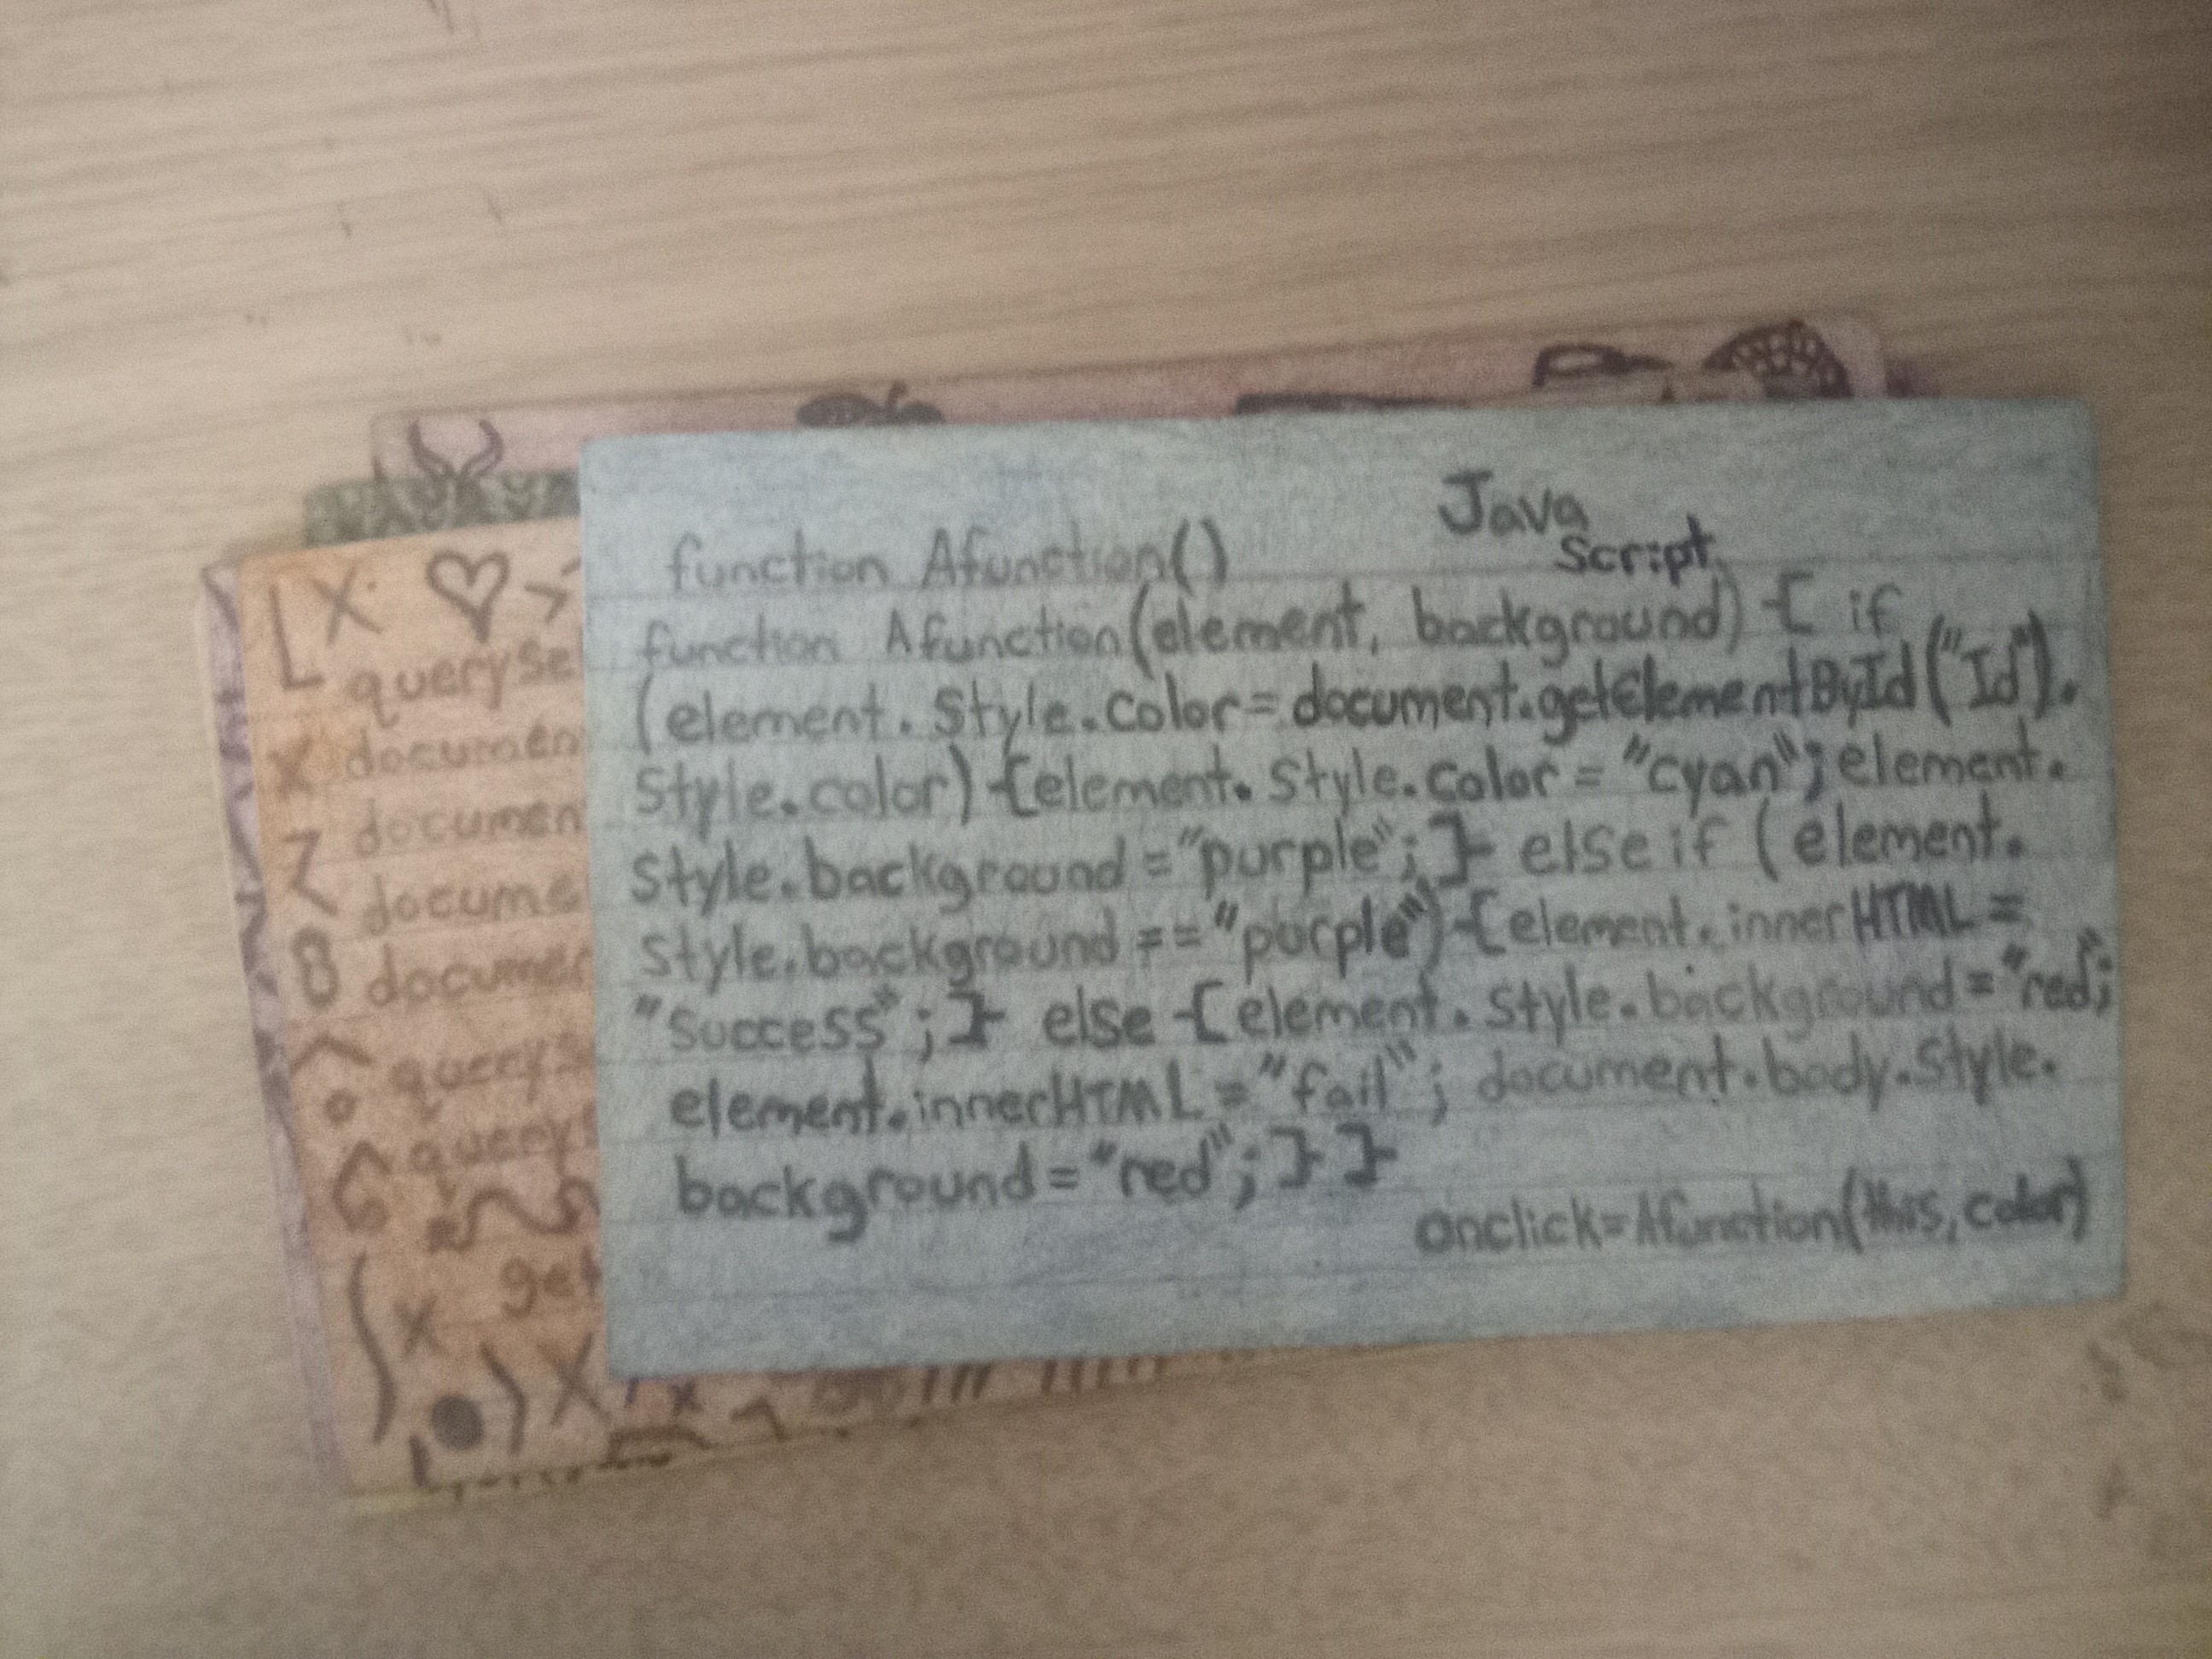 Java
Script
function Afunction()
function Afunction(element, background) { if
(element.style.color=document.getElementById("Id").
style.color) {element.style.color = "cyan"; element.
style.background = "purple"; } else if (element.
style.background == "purple") {element.innerHTML =
"success"; } else {element.style.background = "red;
element.innerHTML = "fail"; document.body.style.
background = "red"; } }
onclick=Afunction(this, color)
[x ♡ >
querySe
x documen
z documen
docume
8 documen
queryS
query
get
x